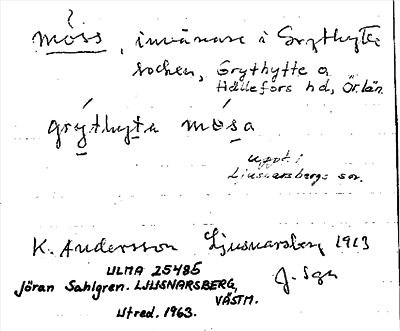 möss, invånare i Grythytte
socken, Grythytte o
Hällefors hd, Ör. län.
grýthyta mósa
uppt. i
Ljusnarsbergs sn.
K. Andersson Ljusnarsberg 1913
ULMA 25485
J. Sgn
Jöran Sahlgren. LJUSNARSBERG,
VÄSTM.
Utred. 1963.